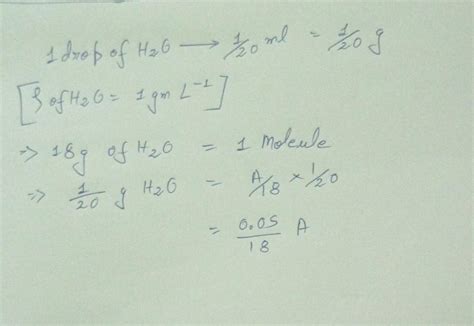 1 drop of H2O → 1/20 ml = 1/20 g
[ρ of H2O = 1 gm L⁻¹]
⇒ 18g of H2O = 1 Molecule
⇒ 1/20 g H2O = A/18 × 1/20
= 0.05/18 A